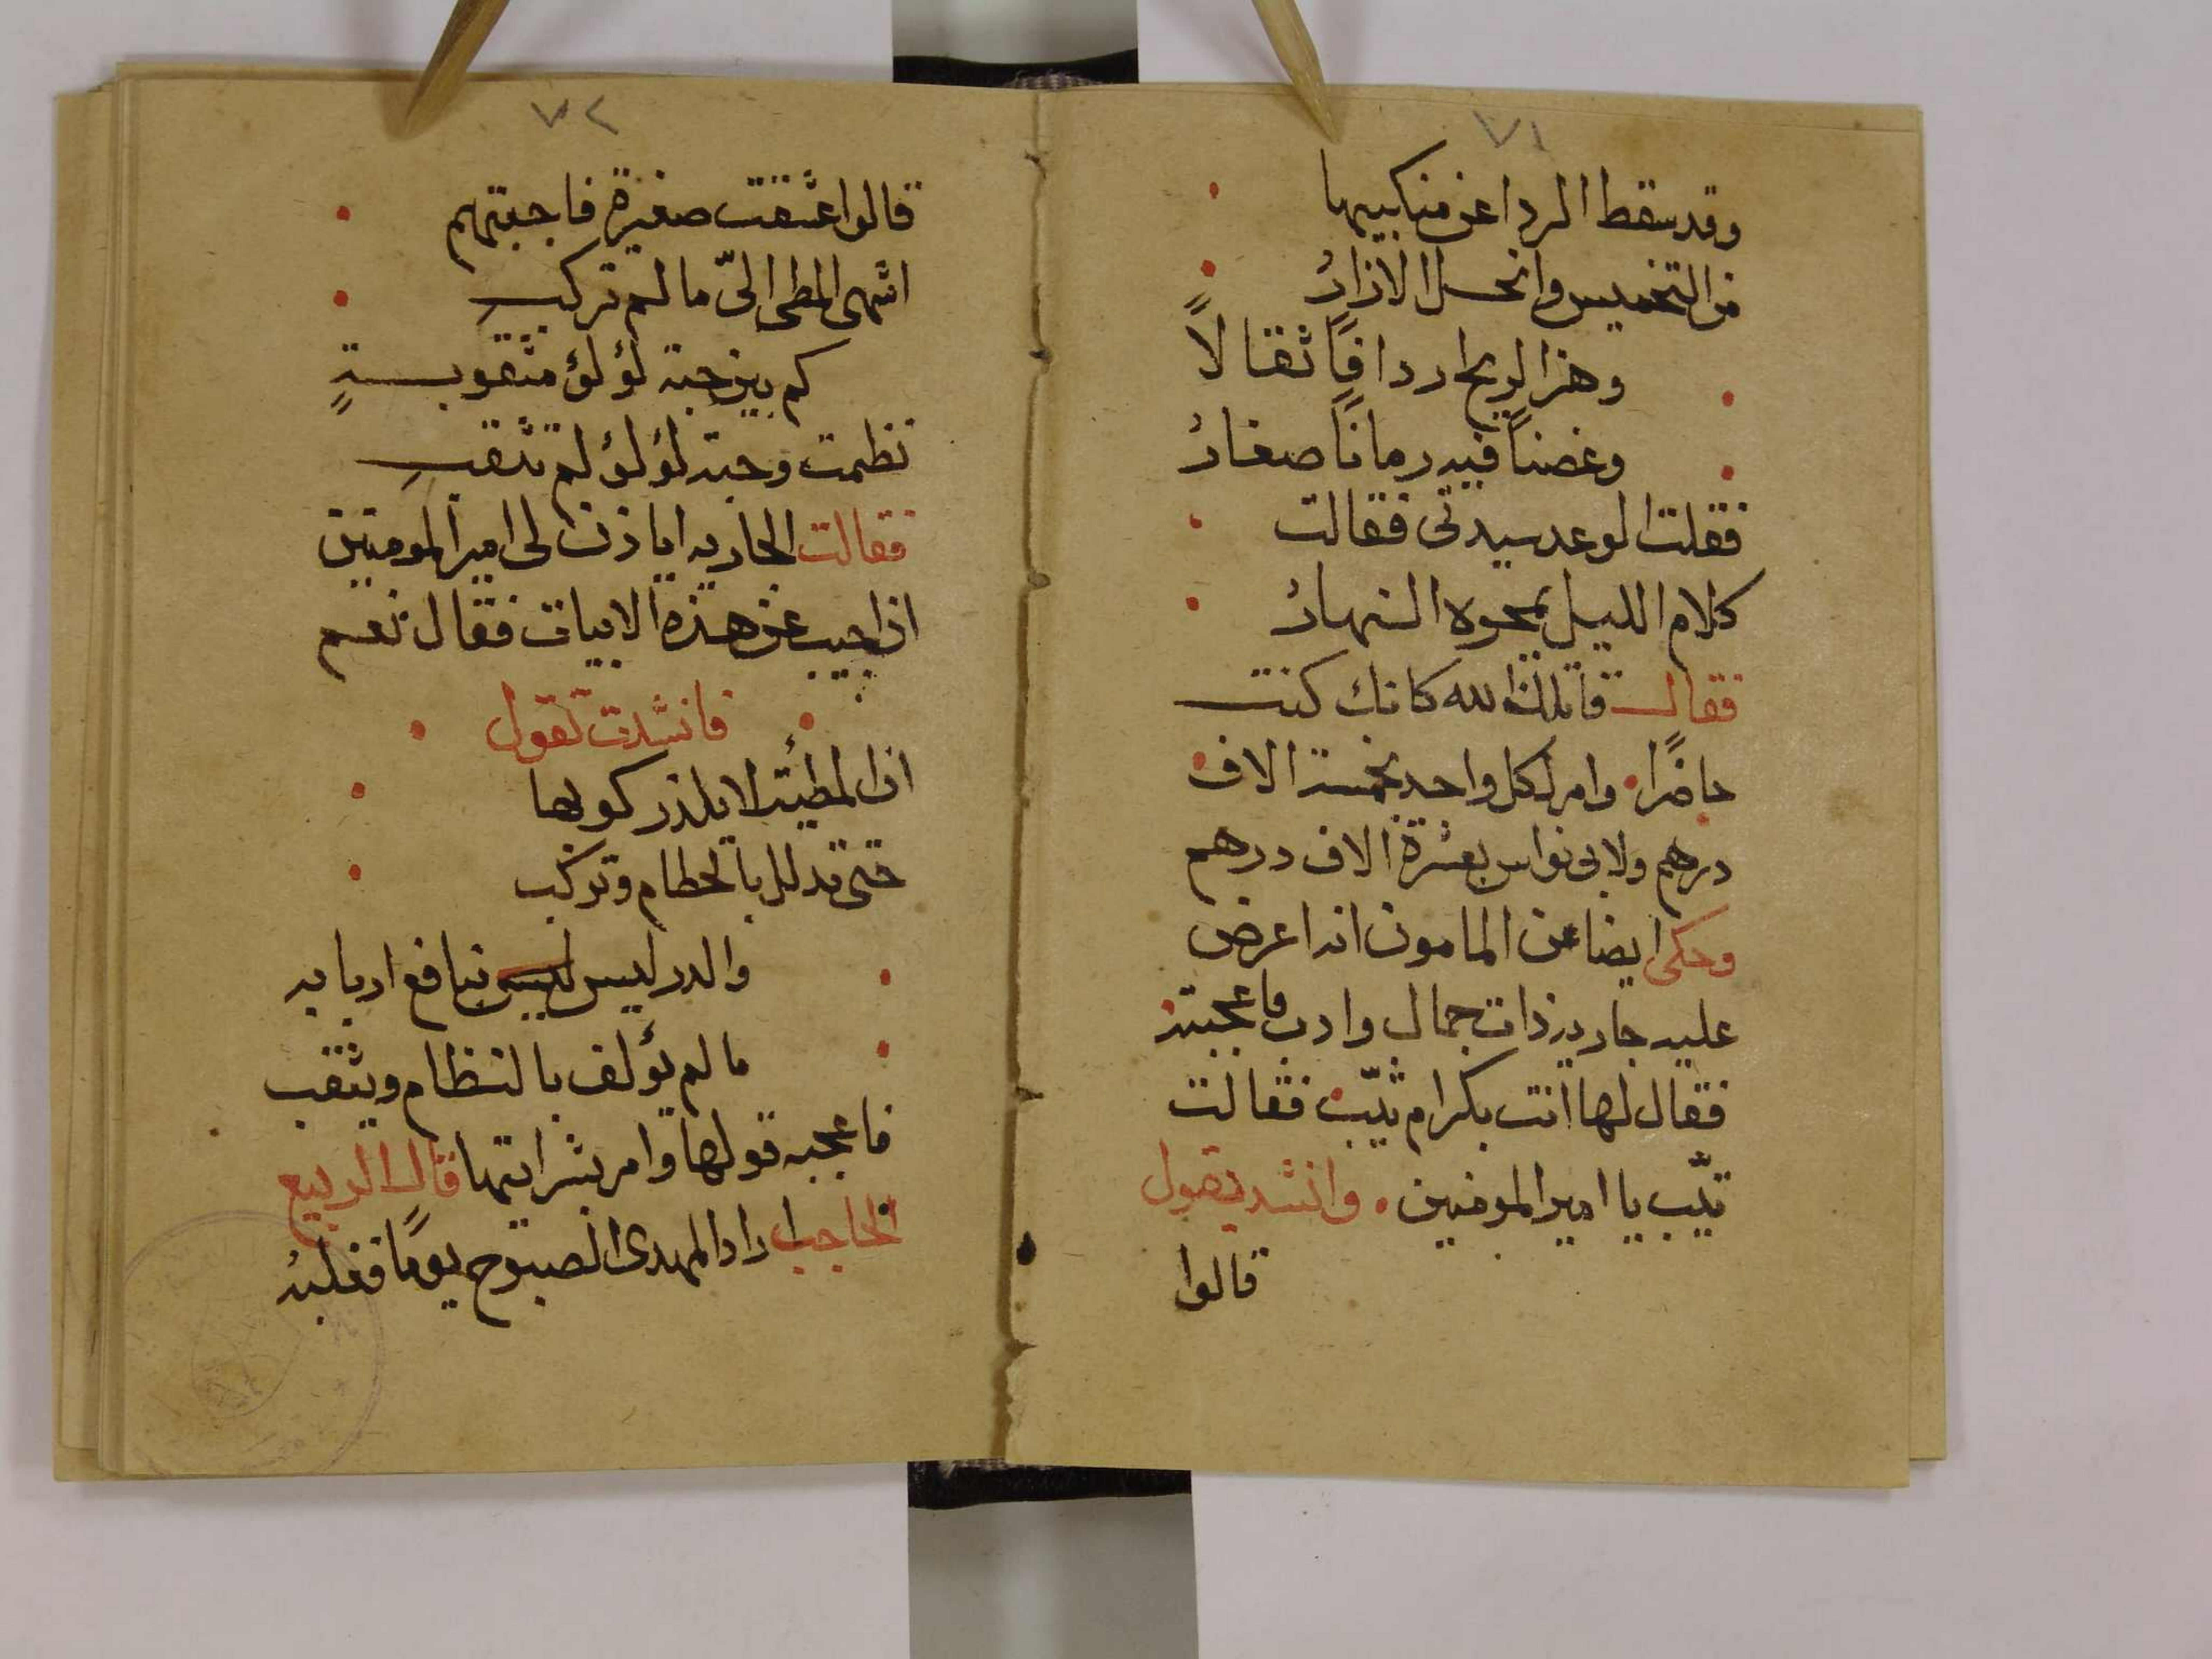 ٧١
وقد سقط الردا عن منكبيها
من التخميس وانحل الازارُ
وهز الريح اردافًا ثقالًا
وغصنًا فيه رمانًا صغارُ
فقلت الوعد سيدتى فقالت
كلام الليل يمحوه النهارُ
فقال قاتلك الله كانك كنت
حاضرًا وامر لكل واحد بخمسة الاف
درهم ولابى نواس بعشرة الاف درهم
وحكى ايضا عن المامون انه اعرض
عليه جارية ذات جمال وادب فاعجبته
فقال لها انت بكرام ثيّب فقالت
ثيّب يا امير المومنين وانشد يقول
قالوا
٧٢
قالوا عشقت صغيرة فاجبتهم
اشهى المطى الىّ ما لم تركب
كم بين حبة لؤلؤ مثقوبةٍ
نظمت وحبة لؤلؤ لم تثقب
فقالت الجاريه اياذن لى امير المومنين
ان اجيب عن هذه الابيات فقال نعم
فانشدت تقول
ان المطيّة لا يلذ ركوبها
حتى تدلل بالخطام وتركب
والدر ليس بنافع اربابه
ما لم يؤلف بالنظام ويثقب
فاعجبه قولها وامر بشرايتها قال الربيع
الحاجب اراد المهدى الصبوح يومًا فغلبهُ